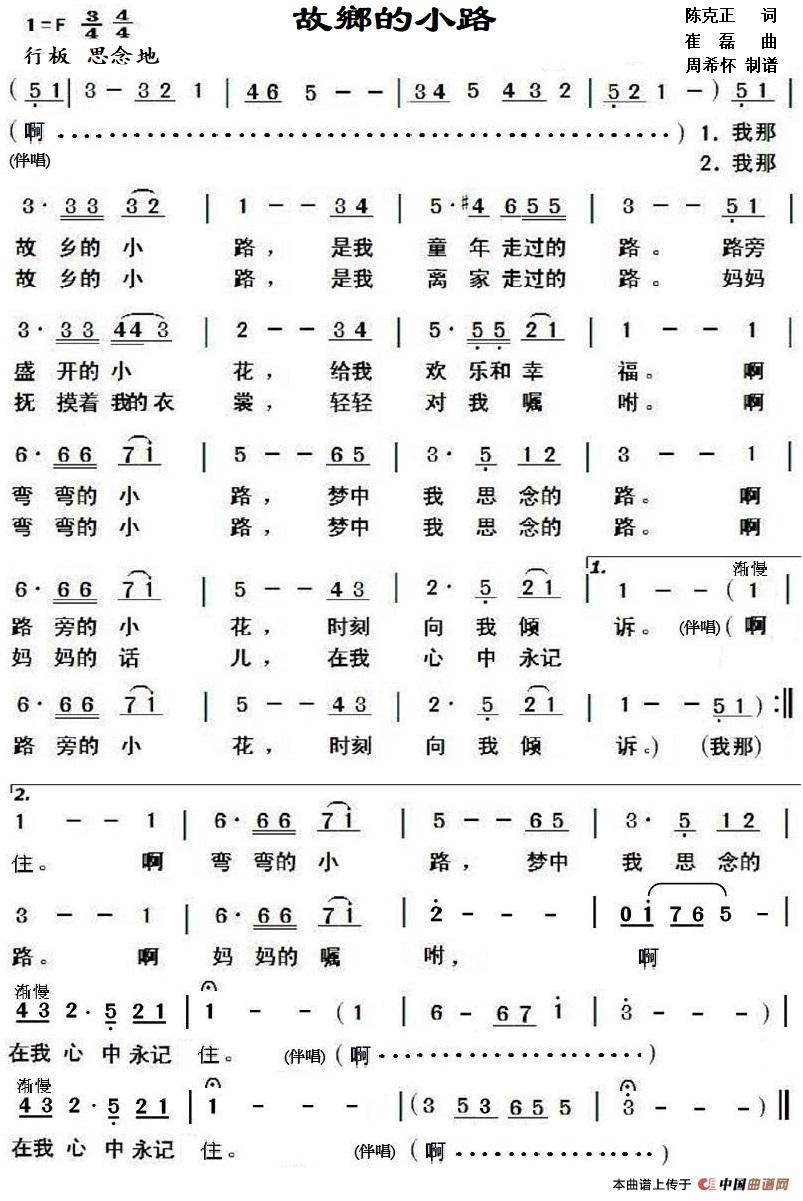 故鄉的小路
1=F 3/4 4/4
行板 思念地
陈克正 词
崔磊 曲
周希怀 制谱
( 5 1 | 3 - 3 2 1 | 4 6 5 - - | 3 4 5 4 3 2 | 5 2 1 - ) 5 1 |
(啊 ………… ) 1. 我那
(伴唱) 2. 我那
3· 3 3 3 2 | 1 - - 3 4 | 5· #4 6 5 5 | 3 - - 5 1 |
故 乡的 小 路， 是我 童 年 走过的 路。 路旁
故 乡的 小 路， 是我 离 家 走过的 路。 妈妈
3· 3 3 4 4 3 | 2 - - 3 4 | 5· 5 5 2 1 | 1 - - 1 |
盛 开的 小 花， 给我 欢 乐和 幸 福。 啊
抚 摸着 我的 衣 裳， 轻轻 对 我 嘱 咐。 啊
6· 6 6 7 i | 5 - - 6 5 | 3· 5 1 2 | 3 - - 1 |
弯 弯的 小 路， 梦中 我 思 念的 路。 啊
弯 弯的 小 路， 梦中 我 思 念的 路。 啊
6· 6 6 7 i | 5 - - 4 3 | 2· 5 2 1 | 1. 渐慢 1 - - ( 1 |
路 旁的 小 花， 时刻 向 我 倾 诉。 (伴唱) ( 啊
妈 妈的 话 儿， 在我 心 中 永记
6· 6 6 7 i | 5 - - 4 3 | 2· 5 2 1 | 1 - - 5 1 ) :||
路 旁的 小 花， 时刻 向 我 倾 诉。) (我那)
2.
1 - - 1 | 6· 6 6 7 i | 5 - - 6 5 | 3· 5 1 2 |
住。 啊 弯 弯的 小 路， 梦中 我 思 念的
3 - - 1 | 6· 6 6 7 i | 2 - - | 0 i 7 6 5 - |
路。 啊 妈 妈的 嘱 咐， 啊
渐慢
4 3 2· 5 2 1 | 1 - - ( 1 | 6 - 6 7 i | 3 - - ) |
在我 心 中 永记 住。 (伴唱) ( 啊 ………… )
渐慢
4 3 2· 5 2 1 | 1 - - - | ( 3 5 3 5 6 5 5 | 3 - - - ) ||
在我 心 中 永记 住。 (伴唱) ( 啊 ………… )
本曲谱上传于 中国曲谱网